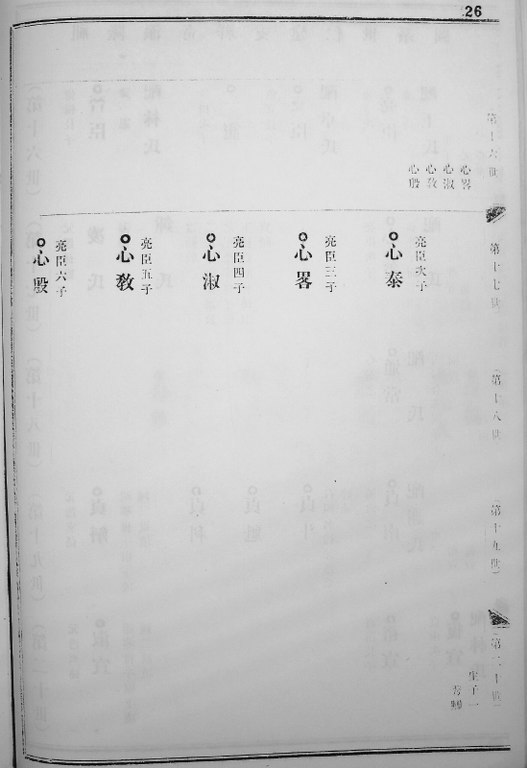 26
第十六世
心畧
心淑
心敎
心殷
第十七世
心泰
亮臣次子
心畧
亮臣三子
心淑
亮臣四子
心敎
亮臣五子
心殷
亮臣六子
(第十八世
(第十九世)
(第二十世)
生子一